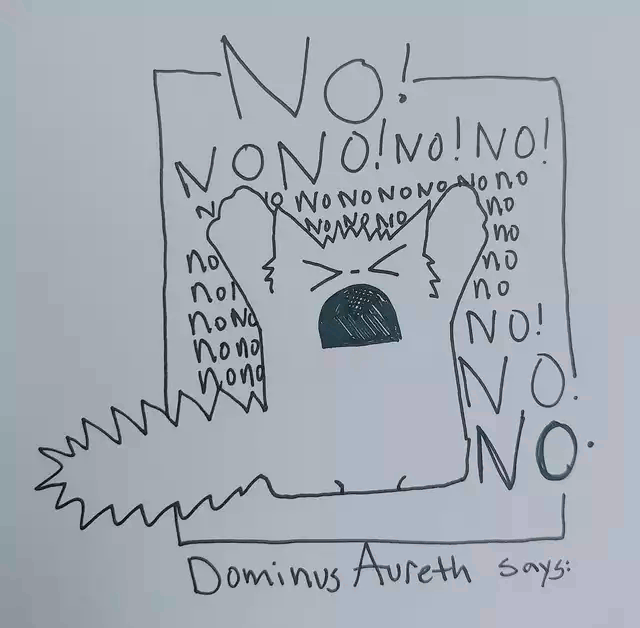 NO!
NO NO! NO! NO!
N NO NO NO NO NO NO no no
NO NO NO
no
no
no
no
no
no
noNO
nono
nono
NO!
NO.
NO.
Dominus Aureth says: